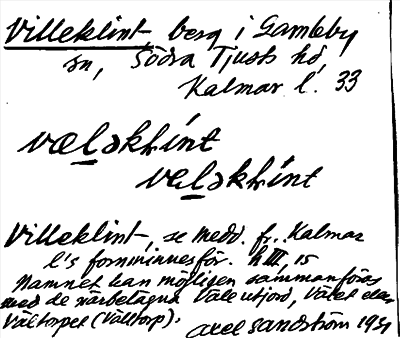 Villeklint, berg i Gamleby
sn, Södra Tjusts hd,
Kalmar l. 33
væləklint
væləklint
Villeklint, se Medd. fr. Kalmar
l:s fornminnesför. h III, 15
Namnet kan möjligen sammanföras
med de närbelägna Välefjord, eller
Vältorpet (Vältorp).
Axel Sandström 1931